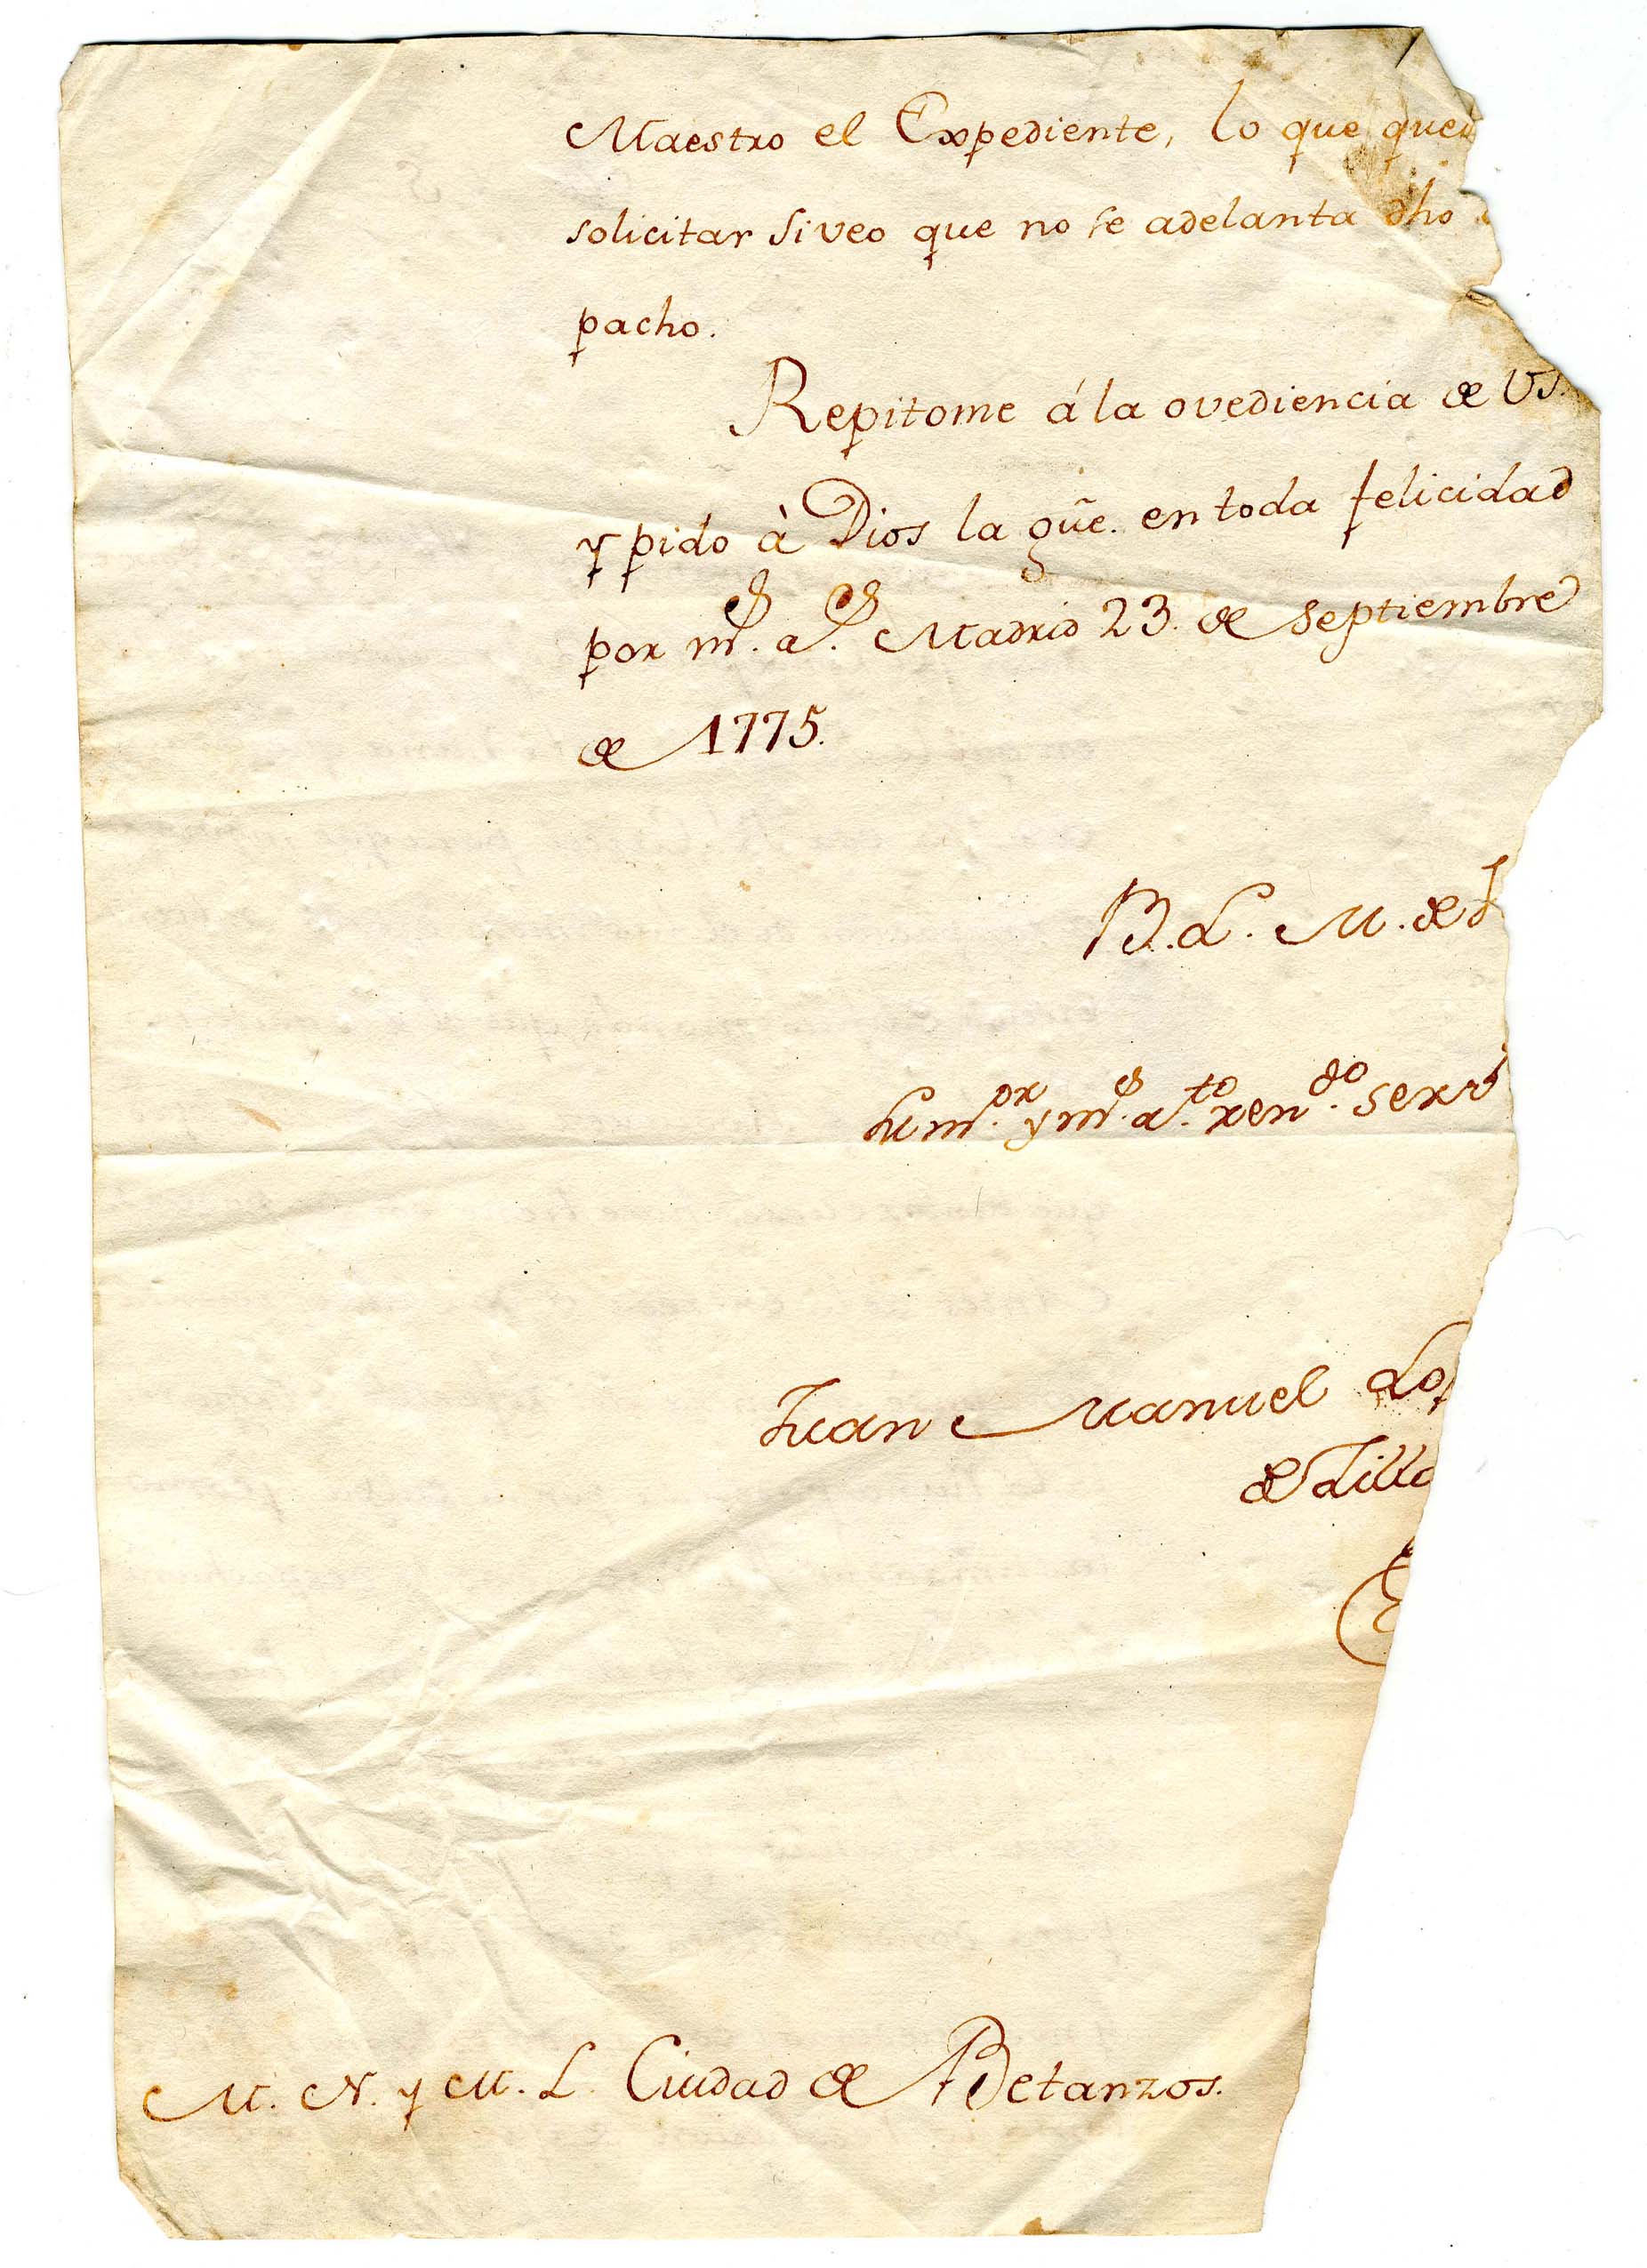 Maestro el Expediente, lo que
solicitar si veo que no se adelanta dho
pacho.
Repitome á la ovediencia de VS.
y pido à Dios la gũe. en toda felicidad
por ms. as. Madrid 23. de Septiembre
de 1775.
B. L. M. de
su mor. y ms. ato. rendo.
Juan Manuel
de
M. N. y M. L. Ciudad de Betanzos.